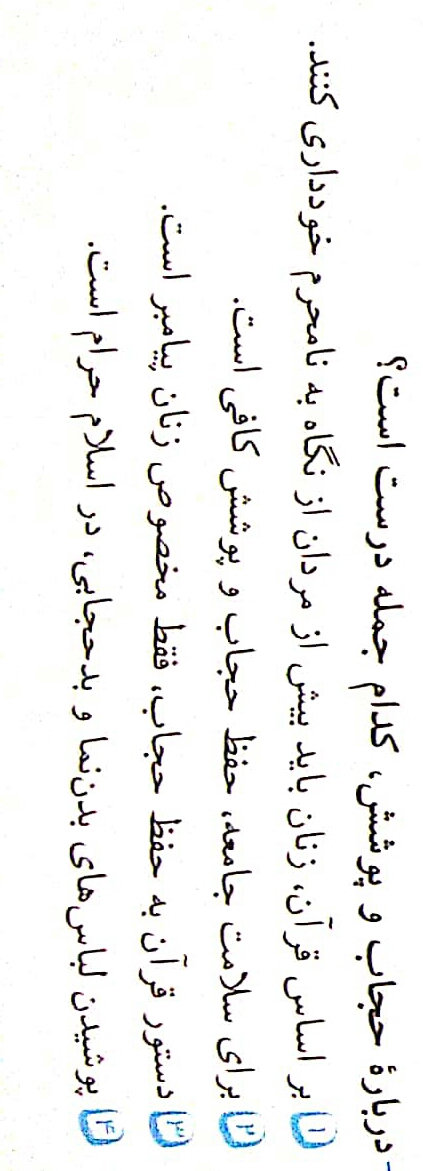 - دربارهٔ حجاب و پوشش، کدام جمله درست است؟
۱ بر اساس قرآن، زنان باید بیش از مردان از نگاه به نامحرم خودداری کنند.
۲ برای سلامت جامعه، حفظ حجاب و پوشش کافی است.
۳ دستور قرآن به حفظ حجاب، فقط مخصوص زنان پیامبر است.
۴ پوشیدن لباس‌های بدن‌نما و بدحجابی، در اسلام حرام است.